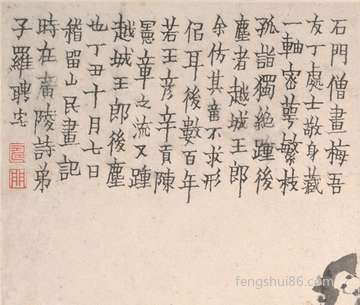 石門僧畫梅吾
友丁處士敬身藏
一軸密萼繁枝
孤詣獨絶踵後
塵者越城王郎
余仿其意不求形
侣耳後數百年
若王彦辛貢陳
憲章之流又踵
越城王郎後塵
也丁丑十月七日
稽留山民畫記
時在廣陵詩弟
子羅聘宅
fengshui86.com